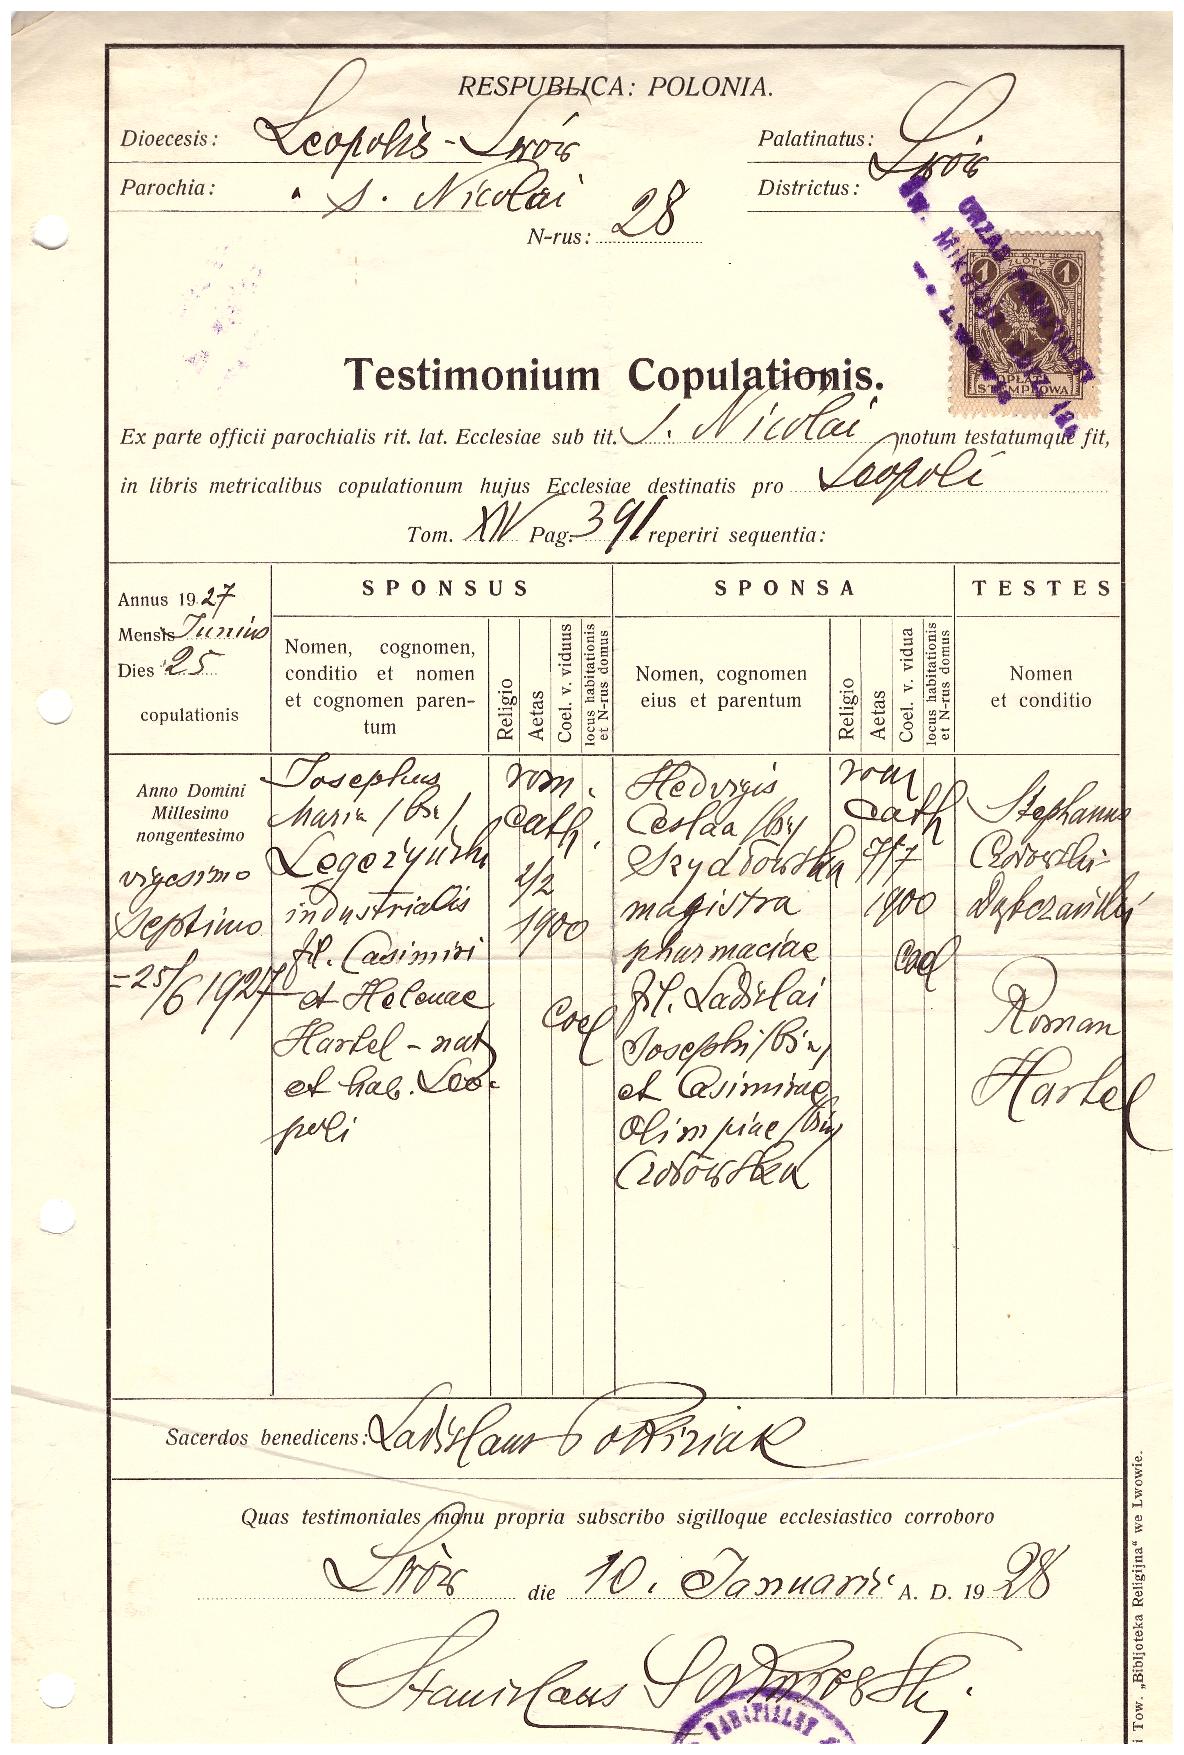 RESPUBLICA: POLONIA.
Dioecesis: Leopolis - Lwów
Palatinatus: Lwów
Parochia: " s. Nicolai
Districtus:
N-rus: 28
URZĄD PARAFIALNY
św. Mikołaja
we Lwowie
1 ZŁOTY 1
OPŁATA
STEMPLOWA
Testimonium Copulationis.
Ex parte officii parochialis rit. lat. Ecclesiae sub tit. s. Nicolai notum testatumque fit,
in libris metricalibus copulationum hujus Ecclesiae destinatis pro Leopoli
Tom. XIV Pag. 391 reperiri sequentia:
Annus 1927
Mensis Junius
Dies 25
copulationis
SPONSUS
Nomen, cognomen,
conditio et nomen
et cognomen paren-
tum
Religio
Aetas
Coel. v. viduus
locus habitationis
et N-rus domus
SPONSA
Nomen, cognomen
eius et parentum
Religio
Aetas
Coel. v. vidua
locus habitationis
et N-rus domus
TESTES
Nomen
et conditio
Anno Domini
Millesimo
nongentesimo
vigesimo
septimo
=25/6 1927
Josephus
Maria /bin/
Legeżyński
industrialis
fil. Casimiri
et Helenae
Hartel - nat
et hab. Leo-
poli
rom.
cath.
2/2
1900
coel
Hedvigis
Ceslaa /bin/
Szydłowska
magistra
pharmaciae
fil. Ladislai
Josephi /bin/
et Casimirae
Olimpiae /bin/
Czołowska
rom
cath
7/7
1900
coel
Stephanus
Czołowski
Dąbczański
Roman
Hartel
Sacerdos benedicens: Ladislaus
Quas testimoniales manu propria subscribo sigilloque ecclesiastico corroboro
Lwów die 10. Januarii A. D. 1928
Stanislaus Sokołowski
PARAFIALNY
i Tow. „Bibljoteka Religijna" we Lwowie.